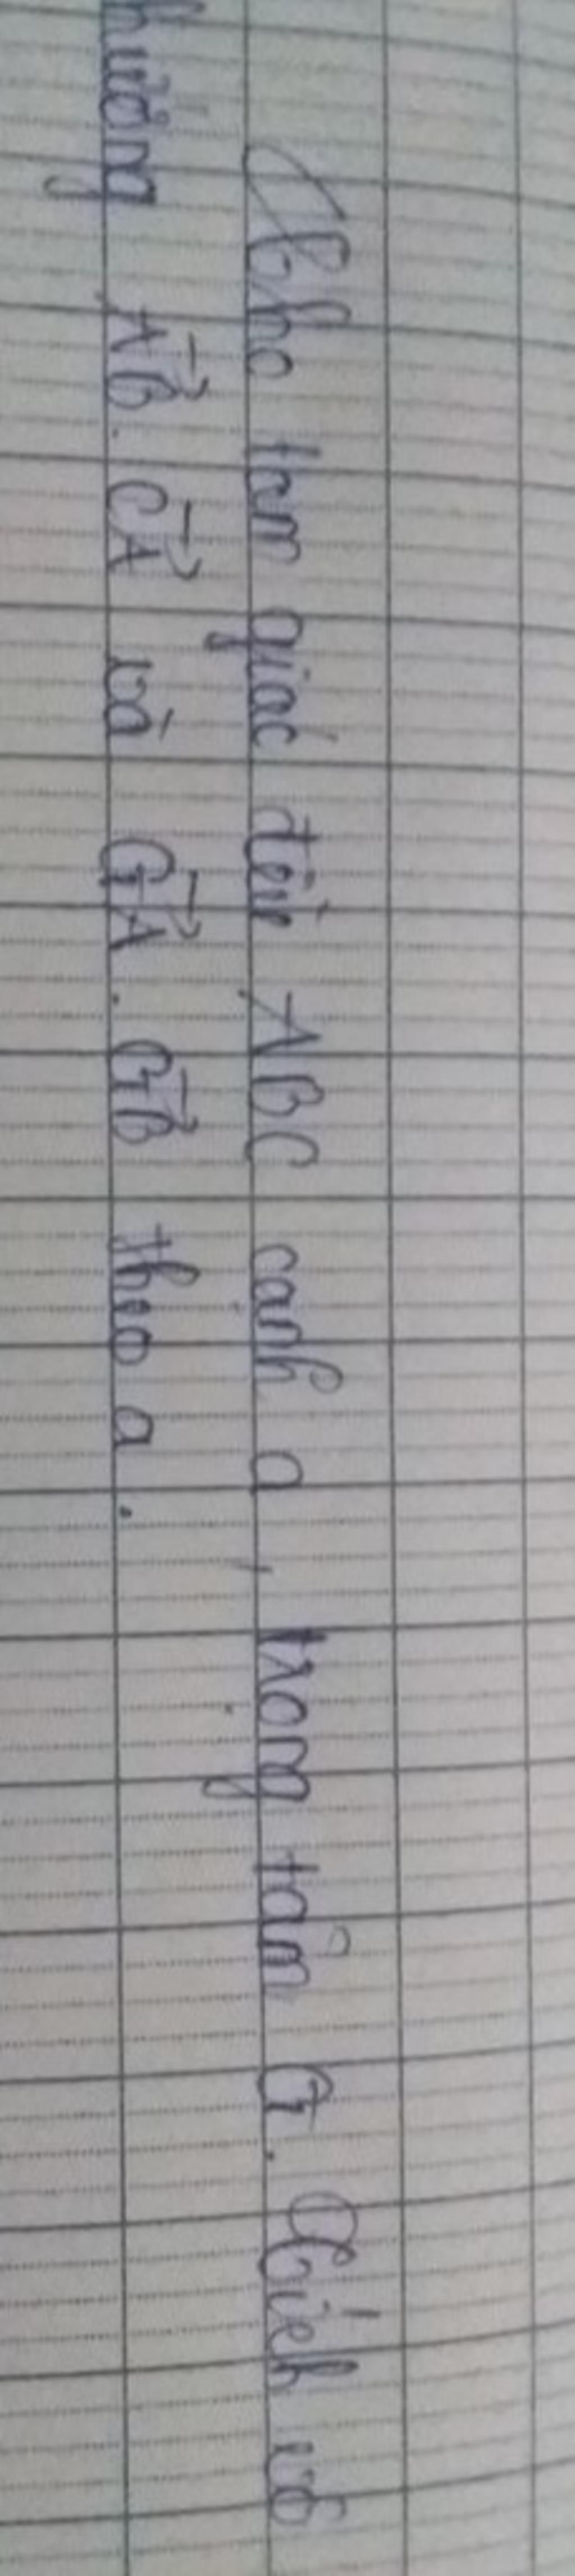 Cho tam giác đều ABC cạnh a, trọng tâm G. Tích vô
hướng \overrightarrow{AB}.\overrightarrow{CA} và \overrightarrow{GA}.\overrightarrow{GB} theo a.